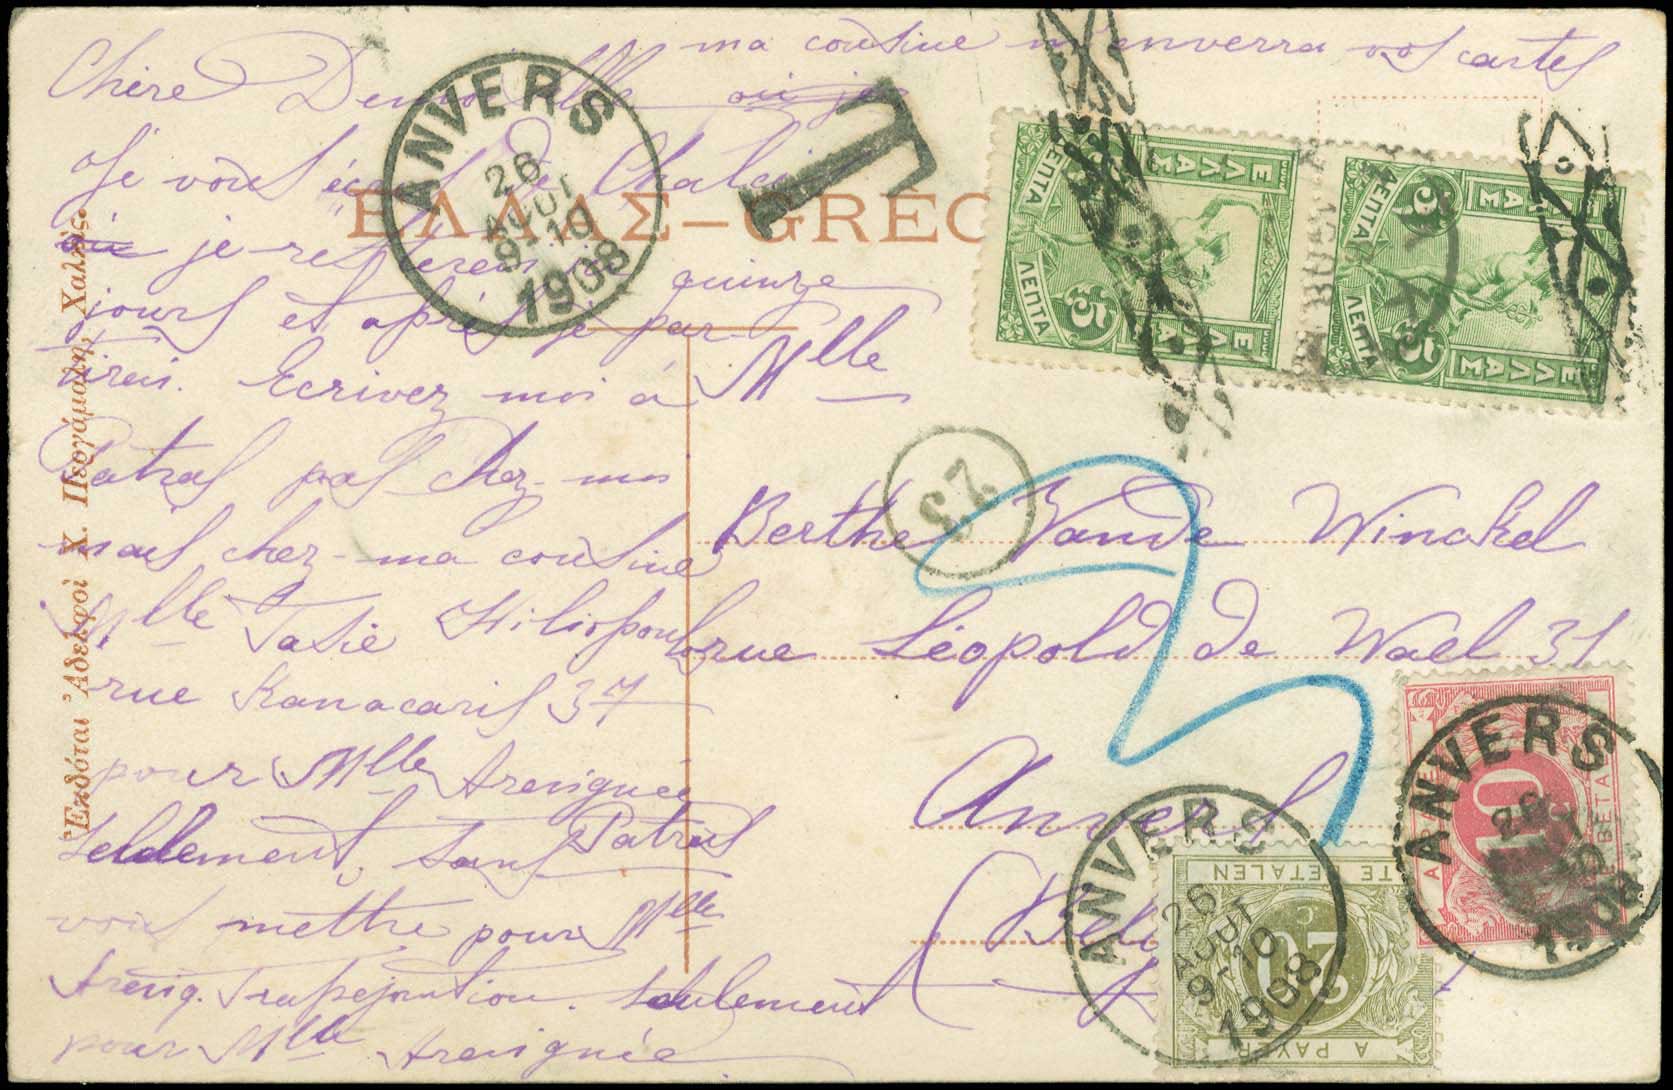 ma cousine m'enverra vos cartes
Chère Demoiselle
Je vous écris de Chalcis
je resterai ici quinze
jours et après je par-
tirai. Ecrivez moi à Mlle
Patras pas chez moi
mais chez ma cousine
Mlle Tasie Hiliopoulo
rue Kanacaris 37
pour Mlle
seulement, Patras
vous mettre pour Mlle
seulement
pour Mlle
ΕΛΛΑΣ–GRÈC
Ἐκδόται Ἀδελφοὶ Χ. Περγάμαλη, Χαλκίς.
Berthe Vande Winckel
rue Léopold de Wael 31
Anvers
ANVERS
26
AOUT
9-10
1908
T
ΕΛΛΑΣ
5 ΛΕΠΤΑ 5
ΛΕΠΤΑ
ΕΛΛΑΣ
ΕΛΛΑΣ
5 ΛΕΠΤΑ 5
ΛΕΠΤΑ
ΕΛΛΑΣ
23
ANVERS
26
1908
10
TE BETALEN
ANVERS
26
AOUT
9-10
1908
TE BETALEN
20
C
A PAYER